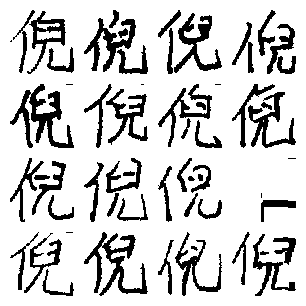 倪倪倪倪
倪倪倪倪
倪倪倪
倪倪倪倪